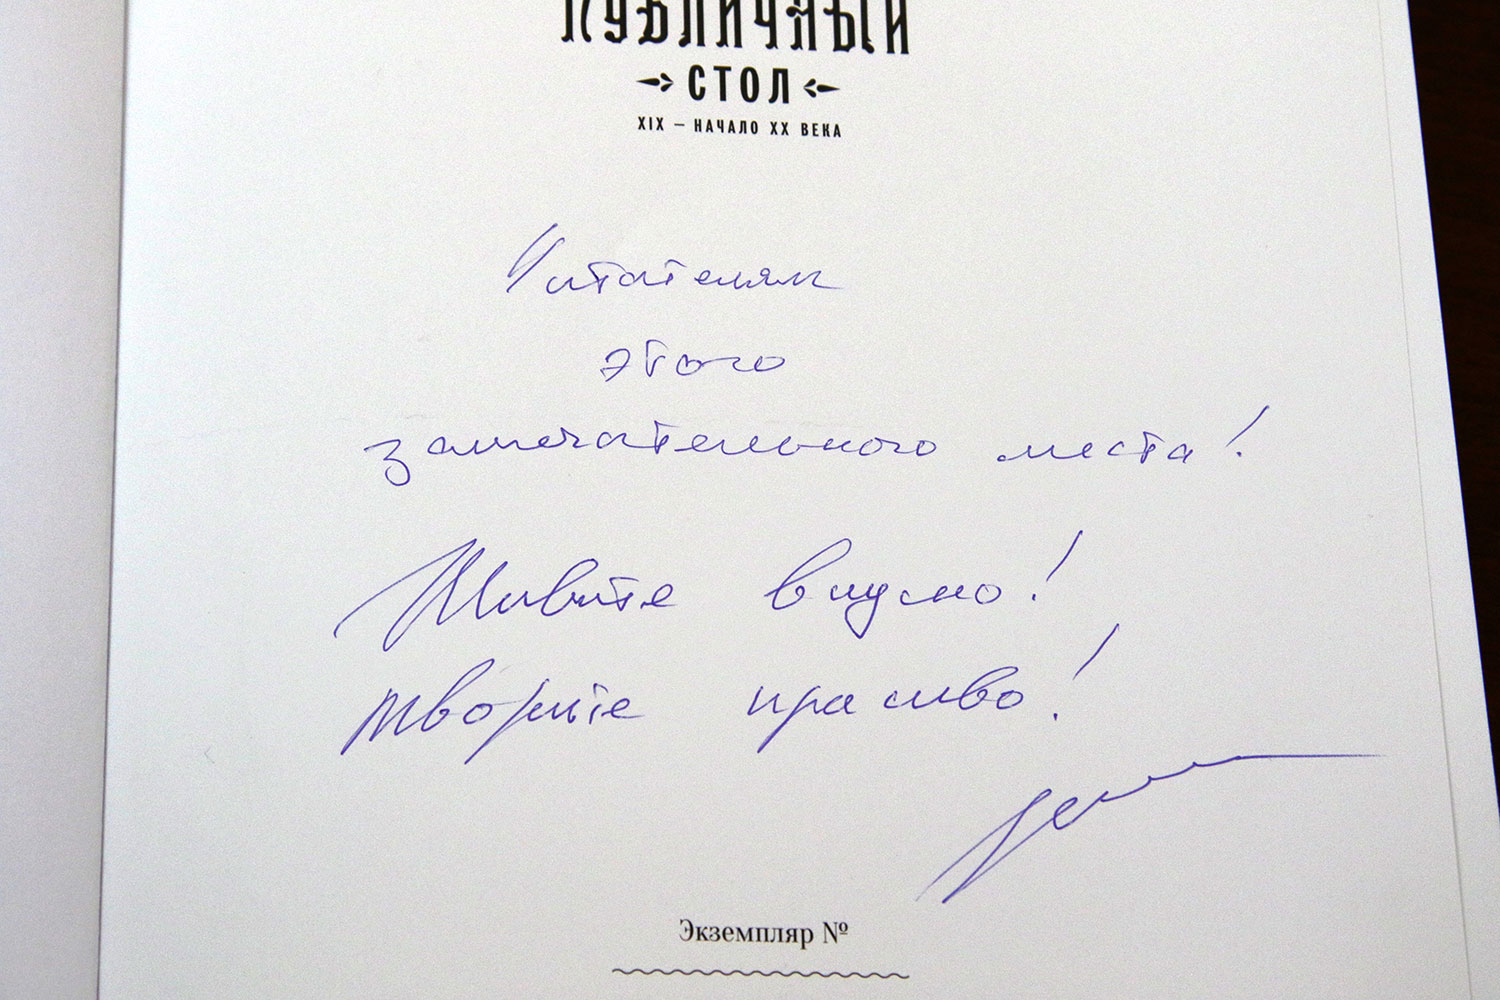 ПУБЛИЧНЫЙ
СТОЛ
XIX – НАЧАЛО XX ВЕКА
Читателям
этого
замечательного места!
Живите вкусно!
творите красиво!
Экземпляр №